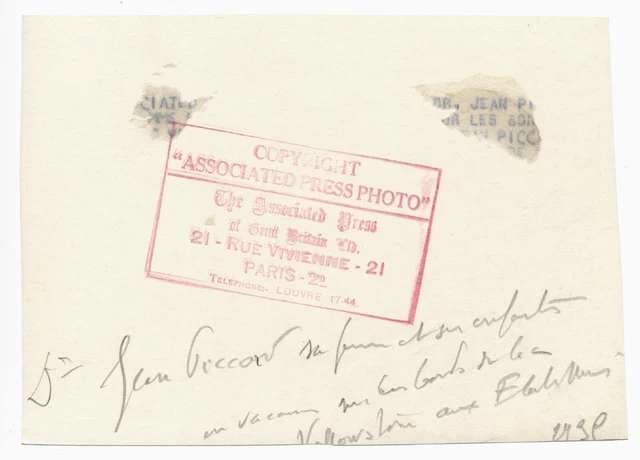 CIATED
DR. JEAN PI
UR LES BOR
PICC
COPYRIGHT
"ASSOCIATED PRESS PHOTO"
The Associated Press
of Great Britain Ltd.
21 - RUE VIVIENNE - 21
PARIS - 2e
TELEPHONE:- LOUVRE 17.44.
Dr Jean Piccard sa femme et ses enfants
en vacances sur les bords de la
Yellowstone aux Etats Unis